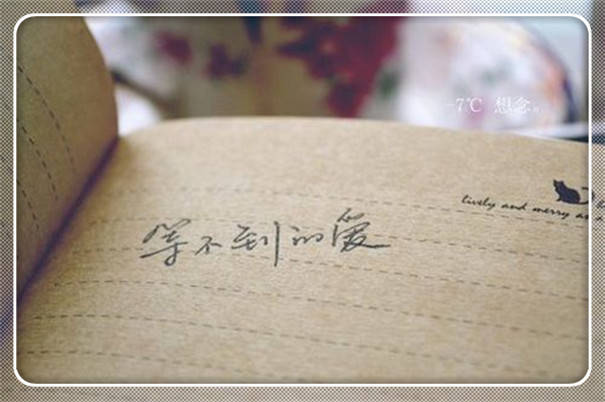 -7℃ 想念。
lively and merry as a
等不到的爱